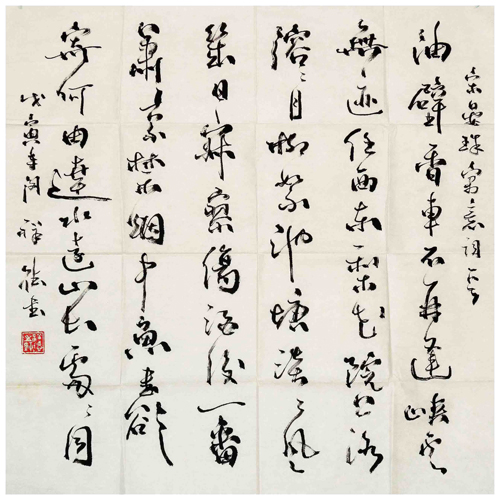 宋晏殊寓意詞一首
油壁香車不再逢峽雲
無迹任西東梨花院落
溶々月柳絮池塘淡々風
幾日寂寥傷酒後一番
蕭索禁烟中魚書欲
寄何由達水遠山長處々同
戊寅年祥書